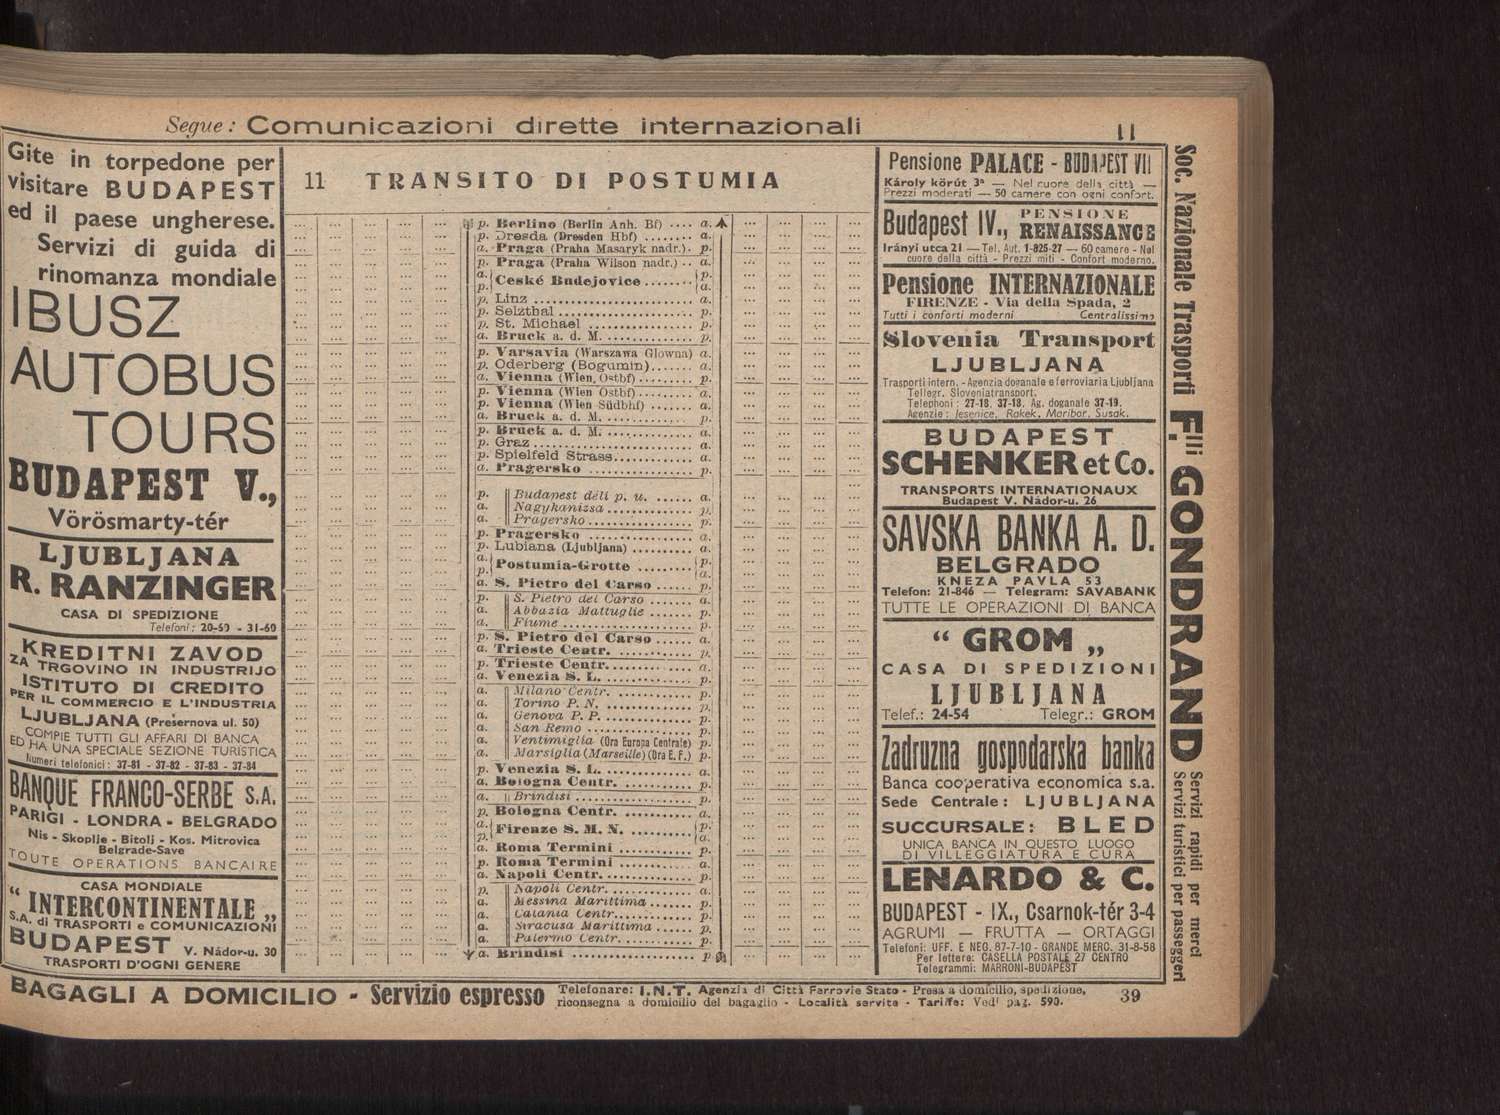 Segue: Comunicazioni dirette internazionali
11
Gite in torpedone per
visitare BUDAPEST
ed il paese ungherese.
Servizi di guida di
rinomanza mondiale
IBUSZ
AUTOBUS
TOURS
BUDAPEST V.,
Vörösmarty-tér
LJUBLJANA
R. RANZINGER
CASA DI SPEDIZIONE
Telefoni: 20-59 - 31-69
KREDITNI ZAVOD
ZA TRGOVINO IN INDUSTRIJO
ISTITUTO DI CREDITO
PER IL COMMERCIO E L'INDUSTRIA
LJUBLJANA (Prešernova ul. 50)
COMPIE TUTTI GLI AFFARI DI BANCA
ED HA UNA SPECIALE SEZIONE TURISTICA
Numeri telefonici: 37-81 - 37-82 - 37-83 - 37-84
BANQUE FRANCO-SERBE S.A.
PARIGI - LONDRA - BELGRADO
Nis - Skoplje - Bitolj - Kos. Mitrovica
Belgrade-Save
TOUTE OPERATIONS BANCAIRE
CASA MONDIALE
“ INTERCONTINENTALE „
S.A. di TRASPORTI e COMUNICAZIONI
BUDAPEST V. Nádor-u. 30
TRASPORTI D'OGNI GENERE
11 TRANSITO DI POSTUMIA
p. Berlino (Berlin Anh. Bf) .... a.
p. Dresda (Dresden Hbf) ........ a.
a. Praga (Praha Masaryk nadr.). p.
p. Praga (Praha Wilson nadr.) .. a.
a. p. Ceské Budejovice ........ p. a.
p. Linz ........ a.
p. Selzthal ........ p.
p. St. Michael ........ p.
a. Bruck a. d. M. ........ p.
p. Varsavia (Warszawa Glowna) a.
p. Oderberg (Bogumin) ....... a.
a. Vienna (Wien, Ostbf) ........ p.
p. Vienna (Wien Ostbf) ........ a.
p. Vienna (Wien Südbhf) ....... a.
a. Bruck a. d. M. ........ p.
p. Bruck a. d. M. ........ a.
p. Graz ........ a.
p. Spielfeld Strass ........ a.
a. Pragersko ........ p.
p. Budapest déli p. u. ...... a.
a. Nagykanizsa ........ p.
a. Pragersko ........ p.
p. Pragersko ........ a.
p. Lubiana (Ljubljana) ........ a.
a. p. Postumia-Grotte ........ p. a.
a. S. Pietro del Carso ..... p.
p. S. Pietro del Carso ...... a.
a. Abbazia Mattuglie ....... p.
a. Fiume ........ p.
p. S. Pietro del Carso ..... a.
a. Trieste Centr. ........ p.
p. Trieste Centr. ........ a.
a. Venezia S. L. ........ p.
a. Milano Centr. ........ p.
a. Torino P. N. ........ p.
a. Genova P. P. ........ p.
a. San Remo ........ p.
a. Ventimiglia (Ora Europa Centrale) p.
a. Marsiglia (Marseille) (Ora E. F.) p.
p. Venezia S. L. ........ a.
a. Bologna Centr. ........ p.
a. Brindisi ........ p.
p. Bologna Centr. ........ a.
a. p. Firenze S. M. N. ........ p. a.
a. Roma Termini ........ p.
p. Roma Termini ........ a.
a. Napoli Centr. ........ p.
p. Napoli Centr. ........ a.
a. Messina Marittima ....... p.
a. Catania Centr. ........ p.
a. Siracusa Marittima ...... p.
a. Palermo Centr. ........ p.
a. Brindisi ........ p.
Pensione PALACE - BUDAPEST VII
Károly körút 3ª — Nel cuore della città —
Prezzi moderati — 50 camere con ogni confort.
Budapest IV., PENSIONE RENAISSANCE
Irányi utca 21 — Tel. Aut. 1-825-27 — 60 camere - Nel
cuore della città - Prezzi miti - Confort moderno.
Pensione INTERNAZIONALE
FIRENZE - Via della Spada, 2
Tutti i conforti moderni Centralissima
Slovenia Transport
LJUBLJANA
Trasporti intern. - Agenzia doganale e ferroviaria Ljubljana
Tellegr. Sloveniatransport.
Telephoni: 27-18, 37-18. Ag. doganale 37-19.
Agenzie: Jesenice, Rakek, Maribor, Susak.
BUDAPEST
SCHENKER et Co.
TRANSPORTS INTERNATIONAUX
Budapest V. Nádor-u. 26
SAVSKA BANKA A. D.
BELGRADO
KNEZA PAVLA 53
Telefon: 21-846 — Telegram: SAVABANK
TUTTE LE OPERAZIONI DI BANCA
“ GROM „
CASA DI SPEDIZIONI
LJUBLJANA
Telef.: 24-54 Telegr.: GROM
Zadruzna gospodarska banka
Banca cooperativa economica s.a.
Sede Centrale: LJUBLJANA
SUCCURSALE: BLED
UNICA BANCA IN QUESTO LUOGO
DI VILLEGGIATURA E CURA
LENARDO & C.
BUDAPEST - IX., Csarnok-tér 3-4
AGRUMI — FRUTTA — ORTAGGI
Telefoni: UFF. E NEG. 87-7-10 - GRANDE MERC. 31-8-58
Per lettere: CASELLA POSTALE 27 CENTRO
Telegrammi: MARRONI-BUDAPEST
Soc. Nazionale Trasporti F.lli GONDRAND
Servizi rapidi per merci
Servizi turistici per passeggeri
BAGAGLI A DOMICILIO - Servizio espresso
Telefonare: I.N.T. Agenzia di Città Ferrovie Stato - Presa a domicilio, spedizione,
riconsegna a domicilio del bagaglio - Località servite - Tariffe: Vedi pag. 590.
39